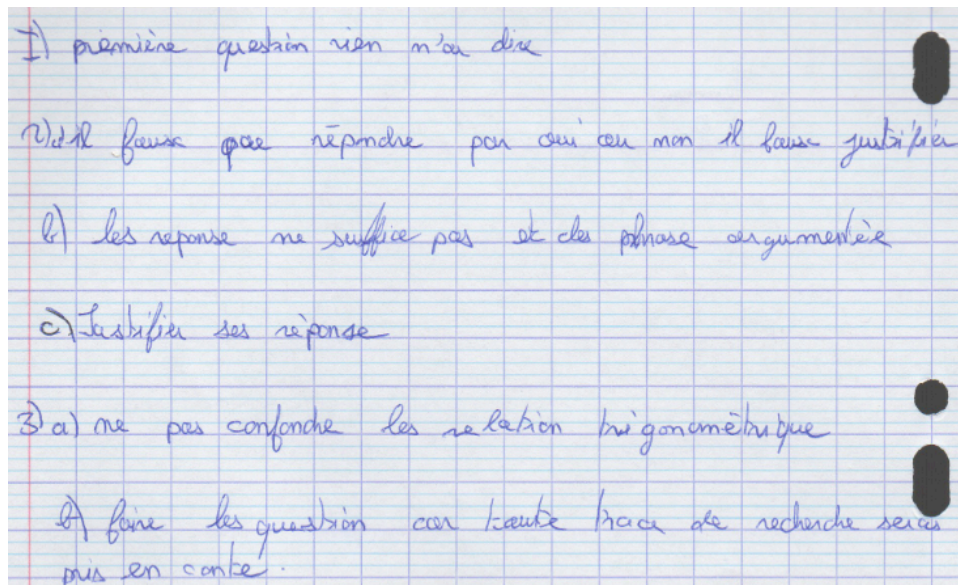 1) première question rien n'a dire
2) a il fause pas répndre par oui ou non il fause justifier
b) les reponse ne suffice pas et des phrase argumentée
c) Justifier ses réponse
3) a) ne pas confondre les relation trigonométrique
b) faire les question car toute trace de recherche seras
pris en conte.